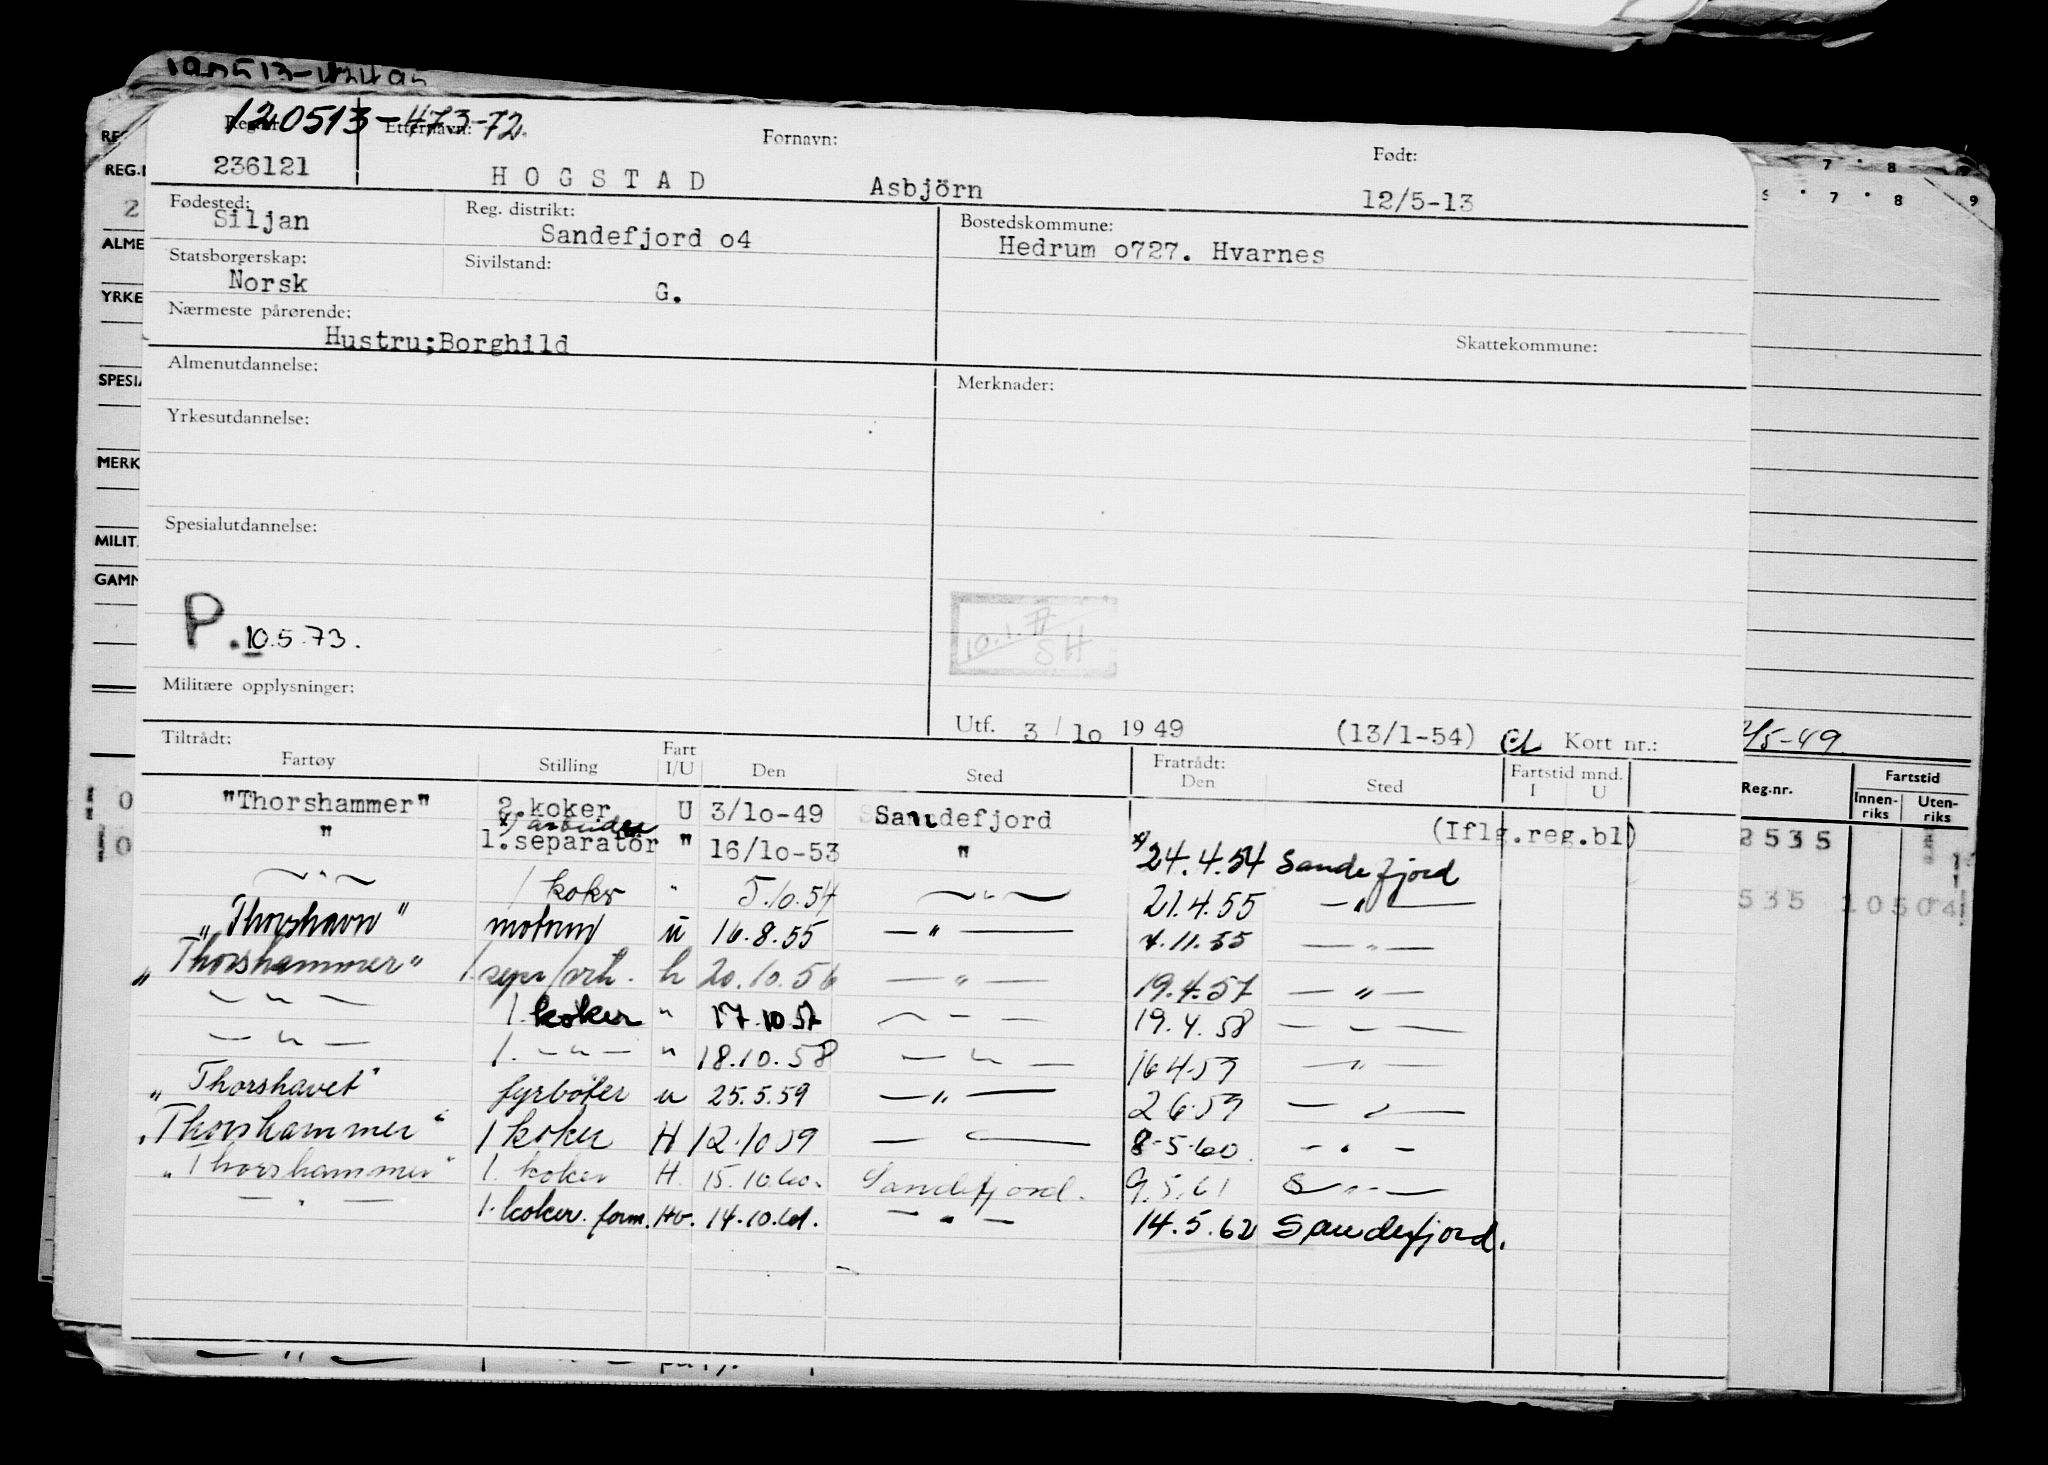 120513-473-72
Regnr. Etternavn: Fornavn: Født:
236121 HOGSTAD Asbjörn 12/5-13
Fødested: Reg. distrikt: Bostedskommune:
Siljan Sandefjord o4 Hedrum o727. Hvarnes
Statsborgerskap: Sivilstand:
Norsk G.
Nærmeste pårørende:
Hustru;Borghild Skattekommune:
Almenutdannelse: Merknader:
Yrkesutdannelse:
Spesialutdannelse:
P. 10.5.73.
10.1. SH
Militære opplysninger:
Utf. 3/10 1949 (13/1-54) Kort nr.:
Tiltrådt: Fratrådt:
Fartøy Stilling Fart I/U Den Sted Den Sted Fartstid mnd. I U
"Thorshammer" 2.koker U 3/10-49 Sandefjord (Iflg.reg.bl)
x) arbeider
" 1.separatör " 16/10-53 " x) 24.4.54 Sandefjord
—"— 1 koker " 5.10.54 —"— 21.4.55 —"—
"Thorshavn" motormn u 16.8.55 —"— 4.11.55 —"—
"Thorshammer" 1. sepr/arb. h 20.10.56 —"— 19.4.57 —"—
—"— 1. koker " 17.10.57 —"— 19.4.58 —"—
—"— 1. —"— " 18.10.58 —"— 16.4.59 —"—
"Thorshavet" fyrbøter u 25.5.59 —"— 2.6.59 —"—
"Thorshammer" 1 koker H 12.10.59 —"— 8-5-60. —"—
"Thorshammer" 1. koker H. 15.10.60. Sandefjord. 9.5.61 S—"—
—"— 1. koker. form. Hv. 14.10.61. —"— 14.5.62 Sandefjord.
REG.
ALME
YRKE
SPESIA
MERK
MILIT
GAMM
7 8 9
7 8 9
/5-49
Reg.nr. Fartstid
Innenriks Utenriks
2535
535 10504